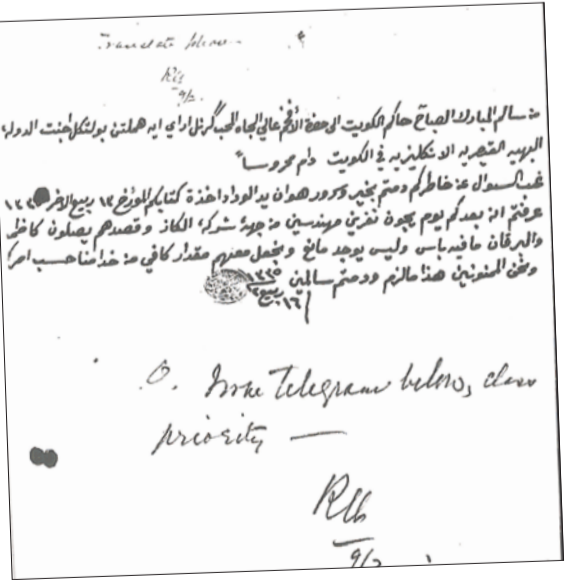 Translate below
RM
9/2
من سالم المبارك الصباح حاكم الكويت الى حضرة الأفخم عالي الجاه المحب كرنل ار اي ايه هملتن بولتكل اجنت الدولة
البهيه القيصريه الانكليزيه في الكويت دام محروسا
غب السؤال عن خاطركم ودمتم بخير وسرور هو ان بيد الوداد اخذة كتابكم المؤرخ ١٢ ربيع الآخر
عرفتم ان بعدكم يوم يجون نفرين مهندسين من جهة شركة الكاز وقصدهم يصلون كاظمه
والبرقان مافيه باس وليس يوجد مانع ونجعل معهم مقدار كافي من خدامنا حسب امركم
ونحن الممنونين هذا مالزم ودمتم سالمين
١٦ ربيع ٢ ١٣٣٥
O. Issue Telegram below, clear
priority —
9/2